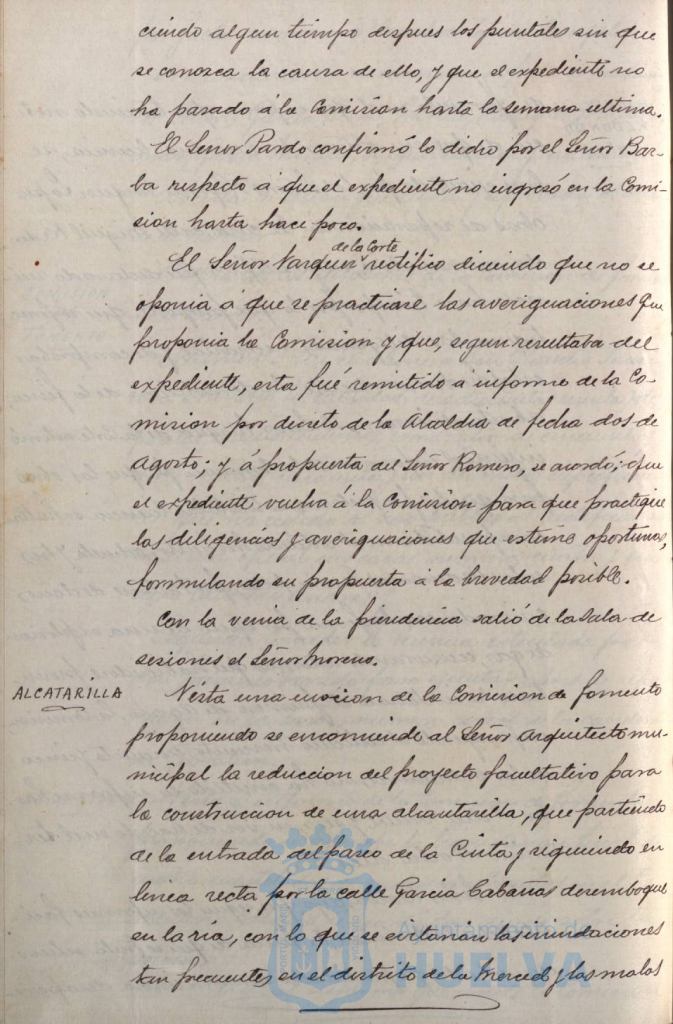 ciendo algun tiempo despues los puntales sin que
se conozca la causa de ello, y que el expediente no
ha pasado á la Comision hasta la semana ultima.
El Señor Pardo confirmó lo dicho por el Señor Bar-
ba respecto á que el expediente no ingresó en la Comi-
sion hasta hace poco.
de la Corte
El Señor Vazquez rectifico diciendo que no se
oponia á que se practicase las averiguaciones que
proponia la Comision y que, segun resultaba del
expediente, esta fué remitido á informe de la Co-
mision por decreto de la Alcaldia de fecha dos de
Agosto; y á propuesta del Señor Romero, se acordó; que
el expediente vuelva á la Comision para que practique
las diligencias y averiguaciones que estime oportunas,
formulando su propuesta á la brevedad posible.
Con la venia de la presidencia salió de la Sala de
sesiones el Señor Moreno.
ALCATARILLA
Vista una mocion de la Comision de fomento
proponiendo se encomiende al Señor Arquitecto mu-
nicipal la reduccion del proyecto facultativo para
la construccion de una alcantarilla, que partiendo
de la entrada del paseo de la Cinta y siguiendo en
linea recta por la calle Garcia Cabañas desemboque
en la ria, con lo que se evitarian las inundaciones
tan frecuentes en el distrito de la Merced y las malas
Ayuntamiento de
HUELVA